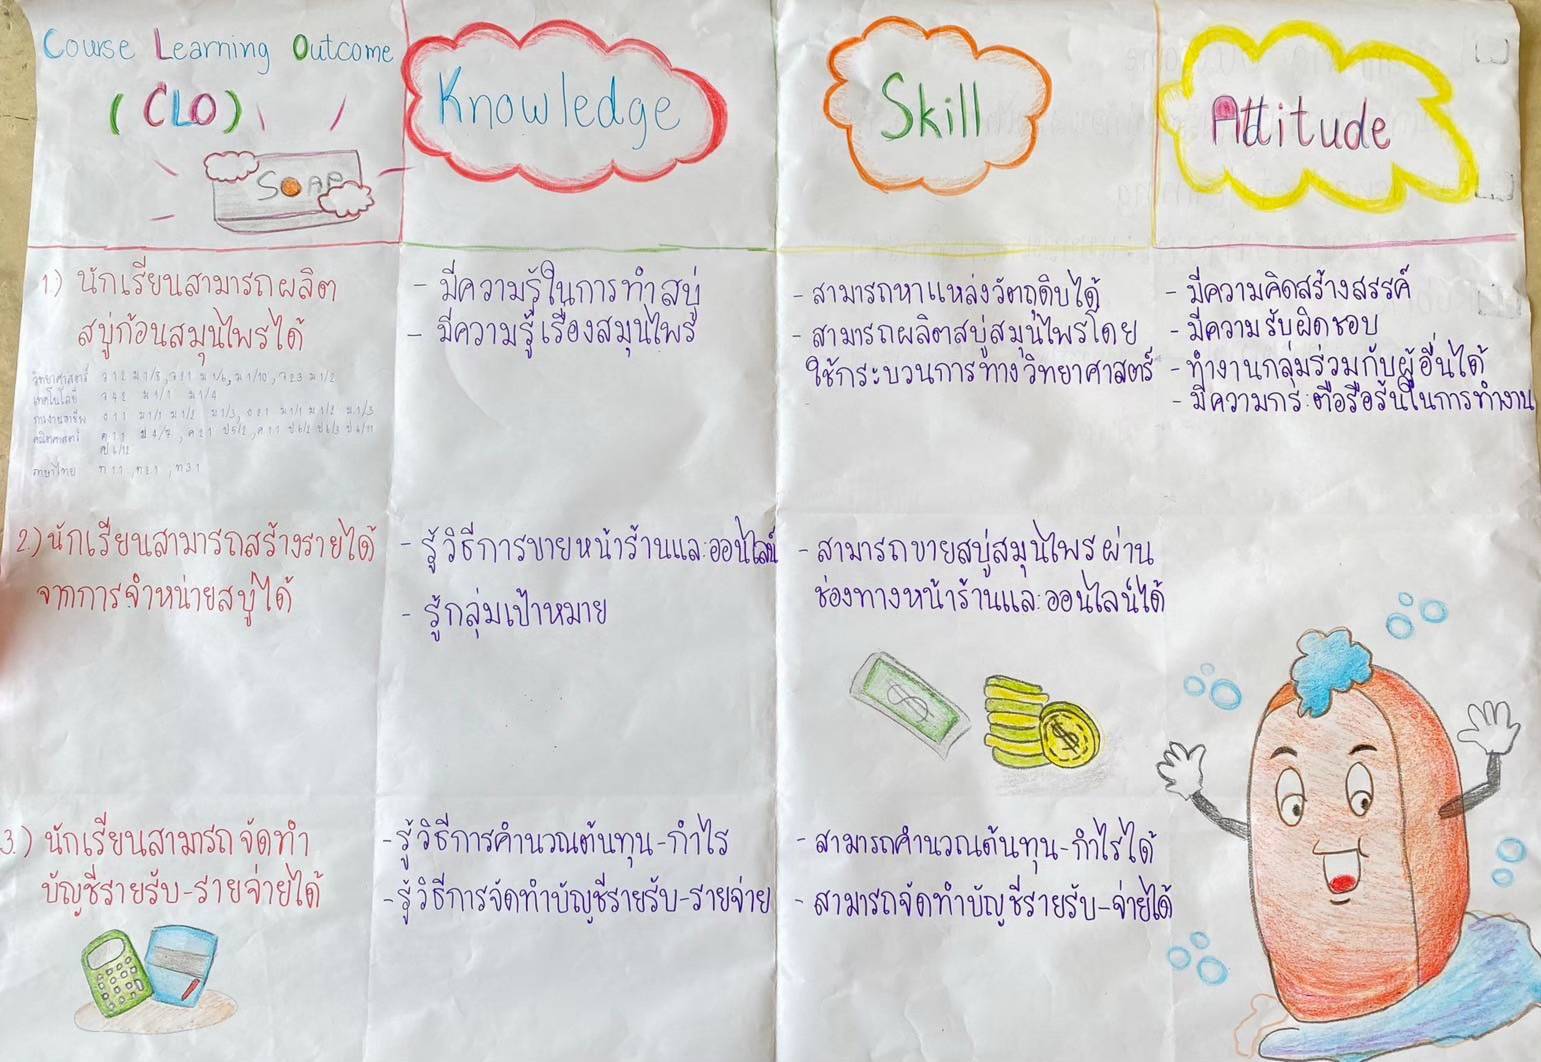 Course Learning Outcome
(CLO)
SOAP
Knowledge
Skill
Attitude
1.) นักเรียนสามารถผลิต
สบู่ก้อนสมุนไพรได้
วิทยาศาสตร์
เทคโนโลยี ว 4.2 ม 1/1 ม 1/4
การงานอาชีพ
คณิตศาสตร์
ภาษาไทย ท 1.1, ท 2.1, ท 3.1
- มีความรู้ในการทำสบู่
- มีความรู้เรื่องสมุนไพร
- สามารถหาแหล่งวัตถุดิบได้
- สามารถผลิตสบู่สมุนไพรโดย
ใช้กระบวนการทางวิทยาศาสตร์
- มีความคิดสร้างสรรค์
- มีความรับผิดชอบ
- ทำงานกลุ่มร่วมกับผู้อื่นได้
- มีความกระตือรือร้นในการทำงาน
2.) นักเรียนสามารถสร้างรายได้
จากการจำหน่ายสบู่ได้
- รู้วิธีการขายหน้าร้านและออนไลน์
- รู้กลุ่มเป้าหมาย
- สามารถขายสบู่สมุนไพรผ่าน
ช่องทางหน้าร้านและออนไลน์ได้
3.) นักเรียนสามารถจัดทำ
บัญชีรายรับ-รายจ่ายได้
- รู้วิธีการคำนวณต้นทุน-กำไร
- รู้วิธีการจัดทำบัญชีรายรับ-รายจ่าย
- สามารถคำนวณต้นทุน-กำไรได้
- สามารถจัดทำบัญชีรายรับ-จ่ายได้